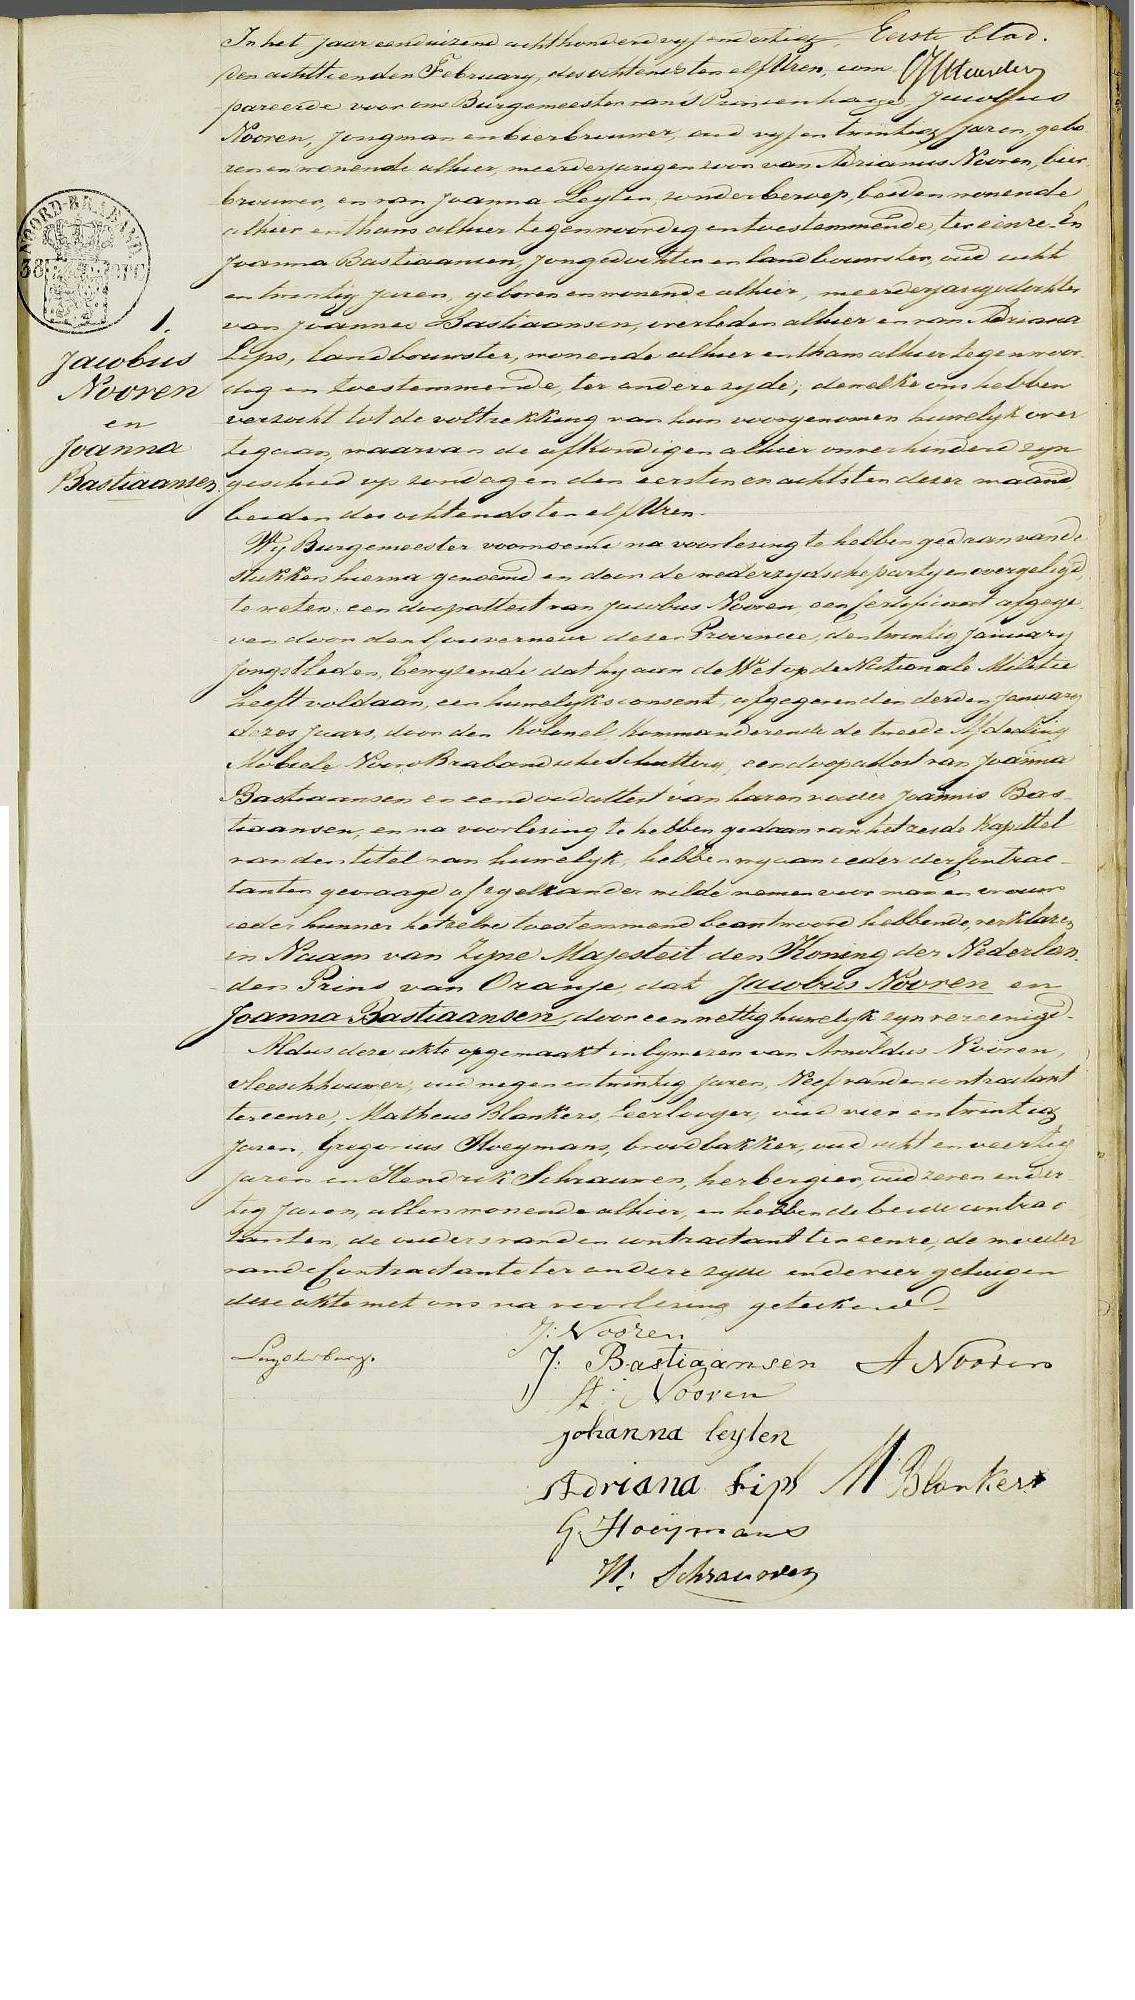 In het Jaar eenduizend achthonderd vyf en dertig, Eerste blad.
den achttienden February, des ochtends ten elf Uren, com
pareerde voor ons Burgemeester van 's Princenhage, Jacobus
Nooren, Jongman en bierbrouwer, oud vyf en twintig Jaren, gebo
ren en wonende alhier, meerderjarigen zoon van Adrianus Nooren, bier
brouwer, en van Joanna Leyten, zonder beroep, beiden wonende
alhier en thans alhier tegenwoordig en toestemmende, ter eenre. En
Joanna Bastiaansen, Jongedochter en landbouwster, oud acht
en twintig Jaren, geboren en wonende alhier, meerderjarige dochter
van Joannes Bastiaansen, overleden alhier en van Adriana
Lips, landbouwster, wonende alhier en thans alhier tegenwoor
dig en toestemmende, ter andere zyde; dewelke ons hebben
verzocht tot de voltrekking van hun voorgenomen huwelyk over
te gaan, waarvan de afkondigen alhier onverhinderd zyn
geschied op zondagen den eersten en achtsten dezer maand,
beiden des ochtends ten elf Uren.
NOORD-BRABAND
38
1.
Jacobus
Nooren
en
Joanna
Bastiaansen.
Wy Burgemeester voornoemd na voorlezing te hebben gedaan van de
stukken hierna genoemd en door de wederzydsche partyen overgelegd,
te weten: een doopattest van Jacobus Nooren, een Certificaat afgege
ven door den Gouverneur dezer Provincie, den twintig January
Jongstleden, bewyzende dat hy aan de Wet op de Nationale Militie
heeft voldaan, een huwelyksconsent, afgegeven den derden January
dezes Jaars, door den Kolonel Kommanderende de tweede Afdeeling
Mobiele Noord Brabandsche Schuttery, een doopattest van Joanna
Bastiaansen en een doodattest van haren vader Joannis Bas
tiaansen, en na voorlezing te hebben gedaan van het zesde Kapittel
van den titel van huwelyk, hebben wy aan ieder der Contrac-
tanten gevraagd of zy elkander wilde nemen voor man en vrouw
ieder hunner hetzelve toestemmend beantwoord hebbende, verklaren
in Naam van Zyne Majesteit den Koning der Nederlan
den Prins van Oranje, dat Jacobus Nooren en
Joanna Bastiaansen, door een wettig huwelyk zyn vereenigd.
Aldus deze akte opgemaakt in bywezen van Arnoldus Nooren,
vleeschhouwer, oud negen en twintig Jaren, Neef van den contractant
ter eenre, Matheus Blankers, Leerlooyer, oud vier en twintig
Jaren, Gregorius Hoeymans, broodbakker, oud acht en veertig
Jaren en Hendrik Schrauwen, herbergier, oud zeven en der
tig Jaren, allen wonende alhier, en hebben de beide contrac
tanten, de ouders van den contractant ter eenre, de moeder
van de Contractante ter andere zyde en de vier getuigen
deze akte met ons na voorlezing geteekend
J: Nooren
J: Bastiaansen A Nooren
A: Nooren
johanna leyten
Adriana Lips M Blankers
G. Hoeymans
H: Schrauwen